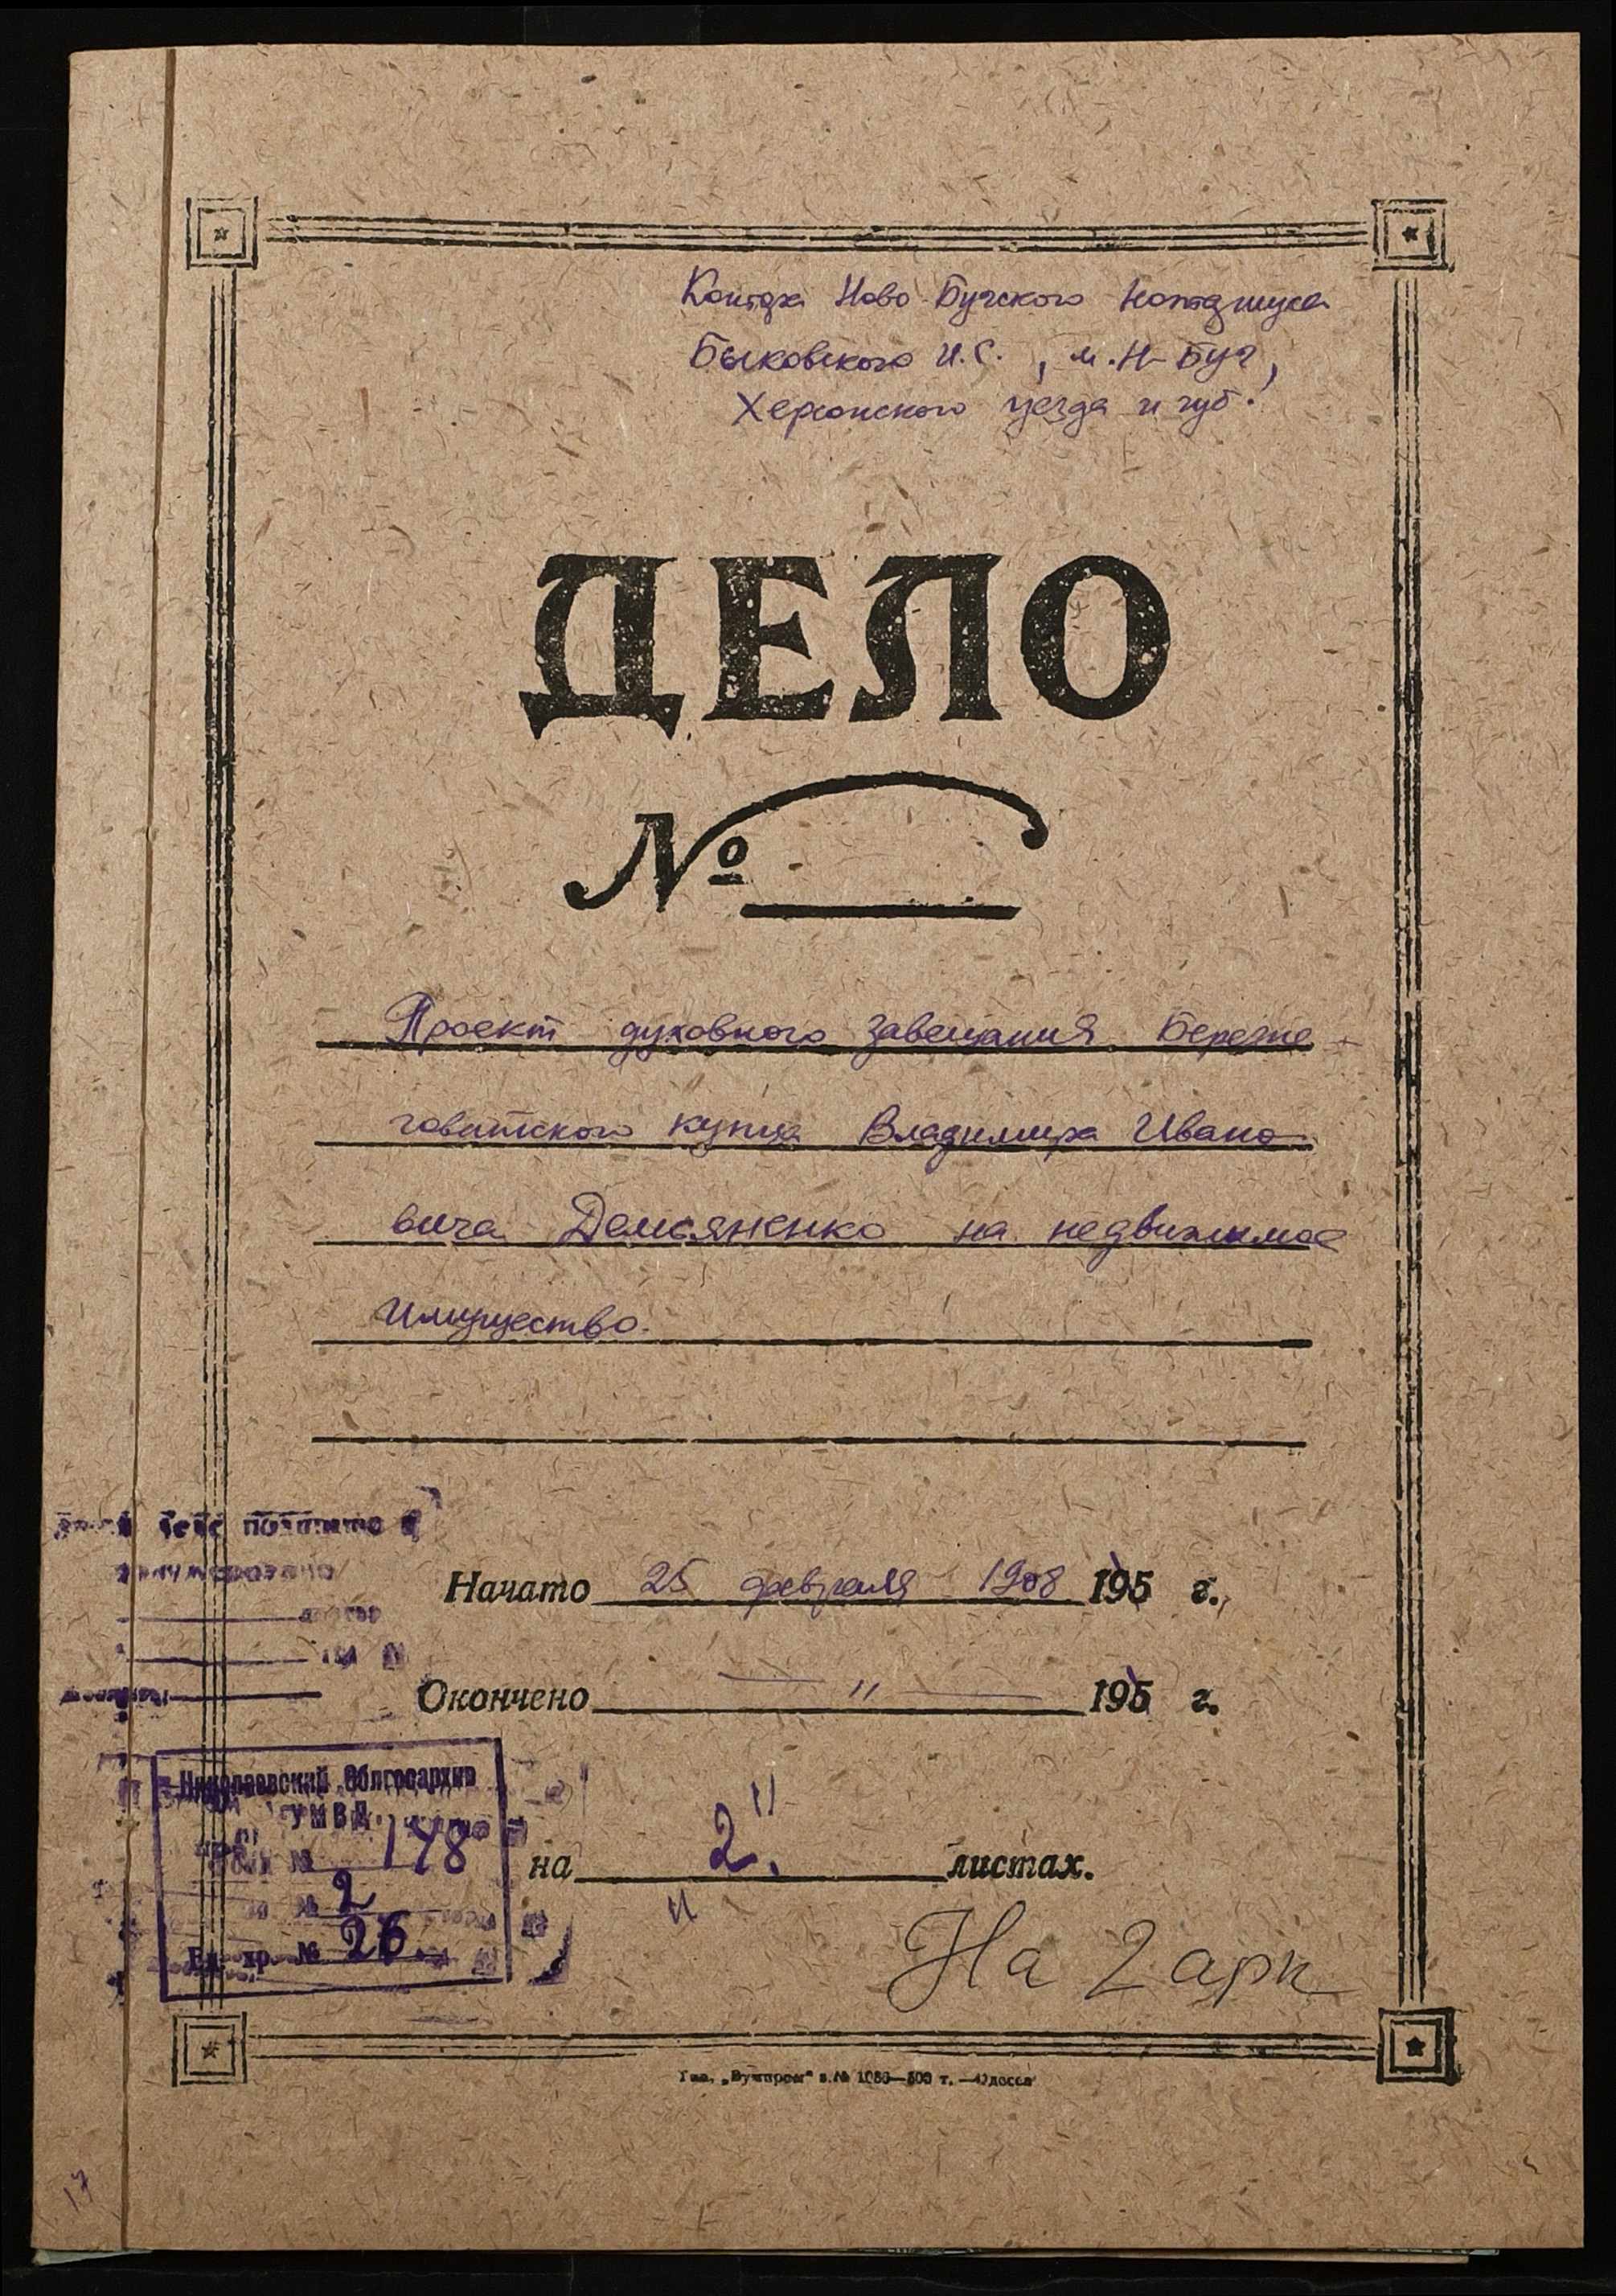 Контора Ново Бугского Нотариуса
Быковского И.С., м. Н-Буг,
Херсонского уезда и губ.
ДЕЛО
№
Проект духовного завещания Березне
говатского купца Владимира Ивано
вича Демьяненко на недвижимое
имущество.
Начато 25 февраля 1908 195 г.,
Окончено — " — 195 г.
Николаевский Облгосархив
УМВД
178
№ 2
Ед. хр. № 26.
на "2." листах.
На 2 арк
Тип. № 1086—500 т. — Одесса
17